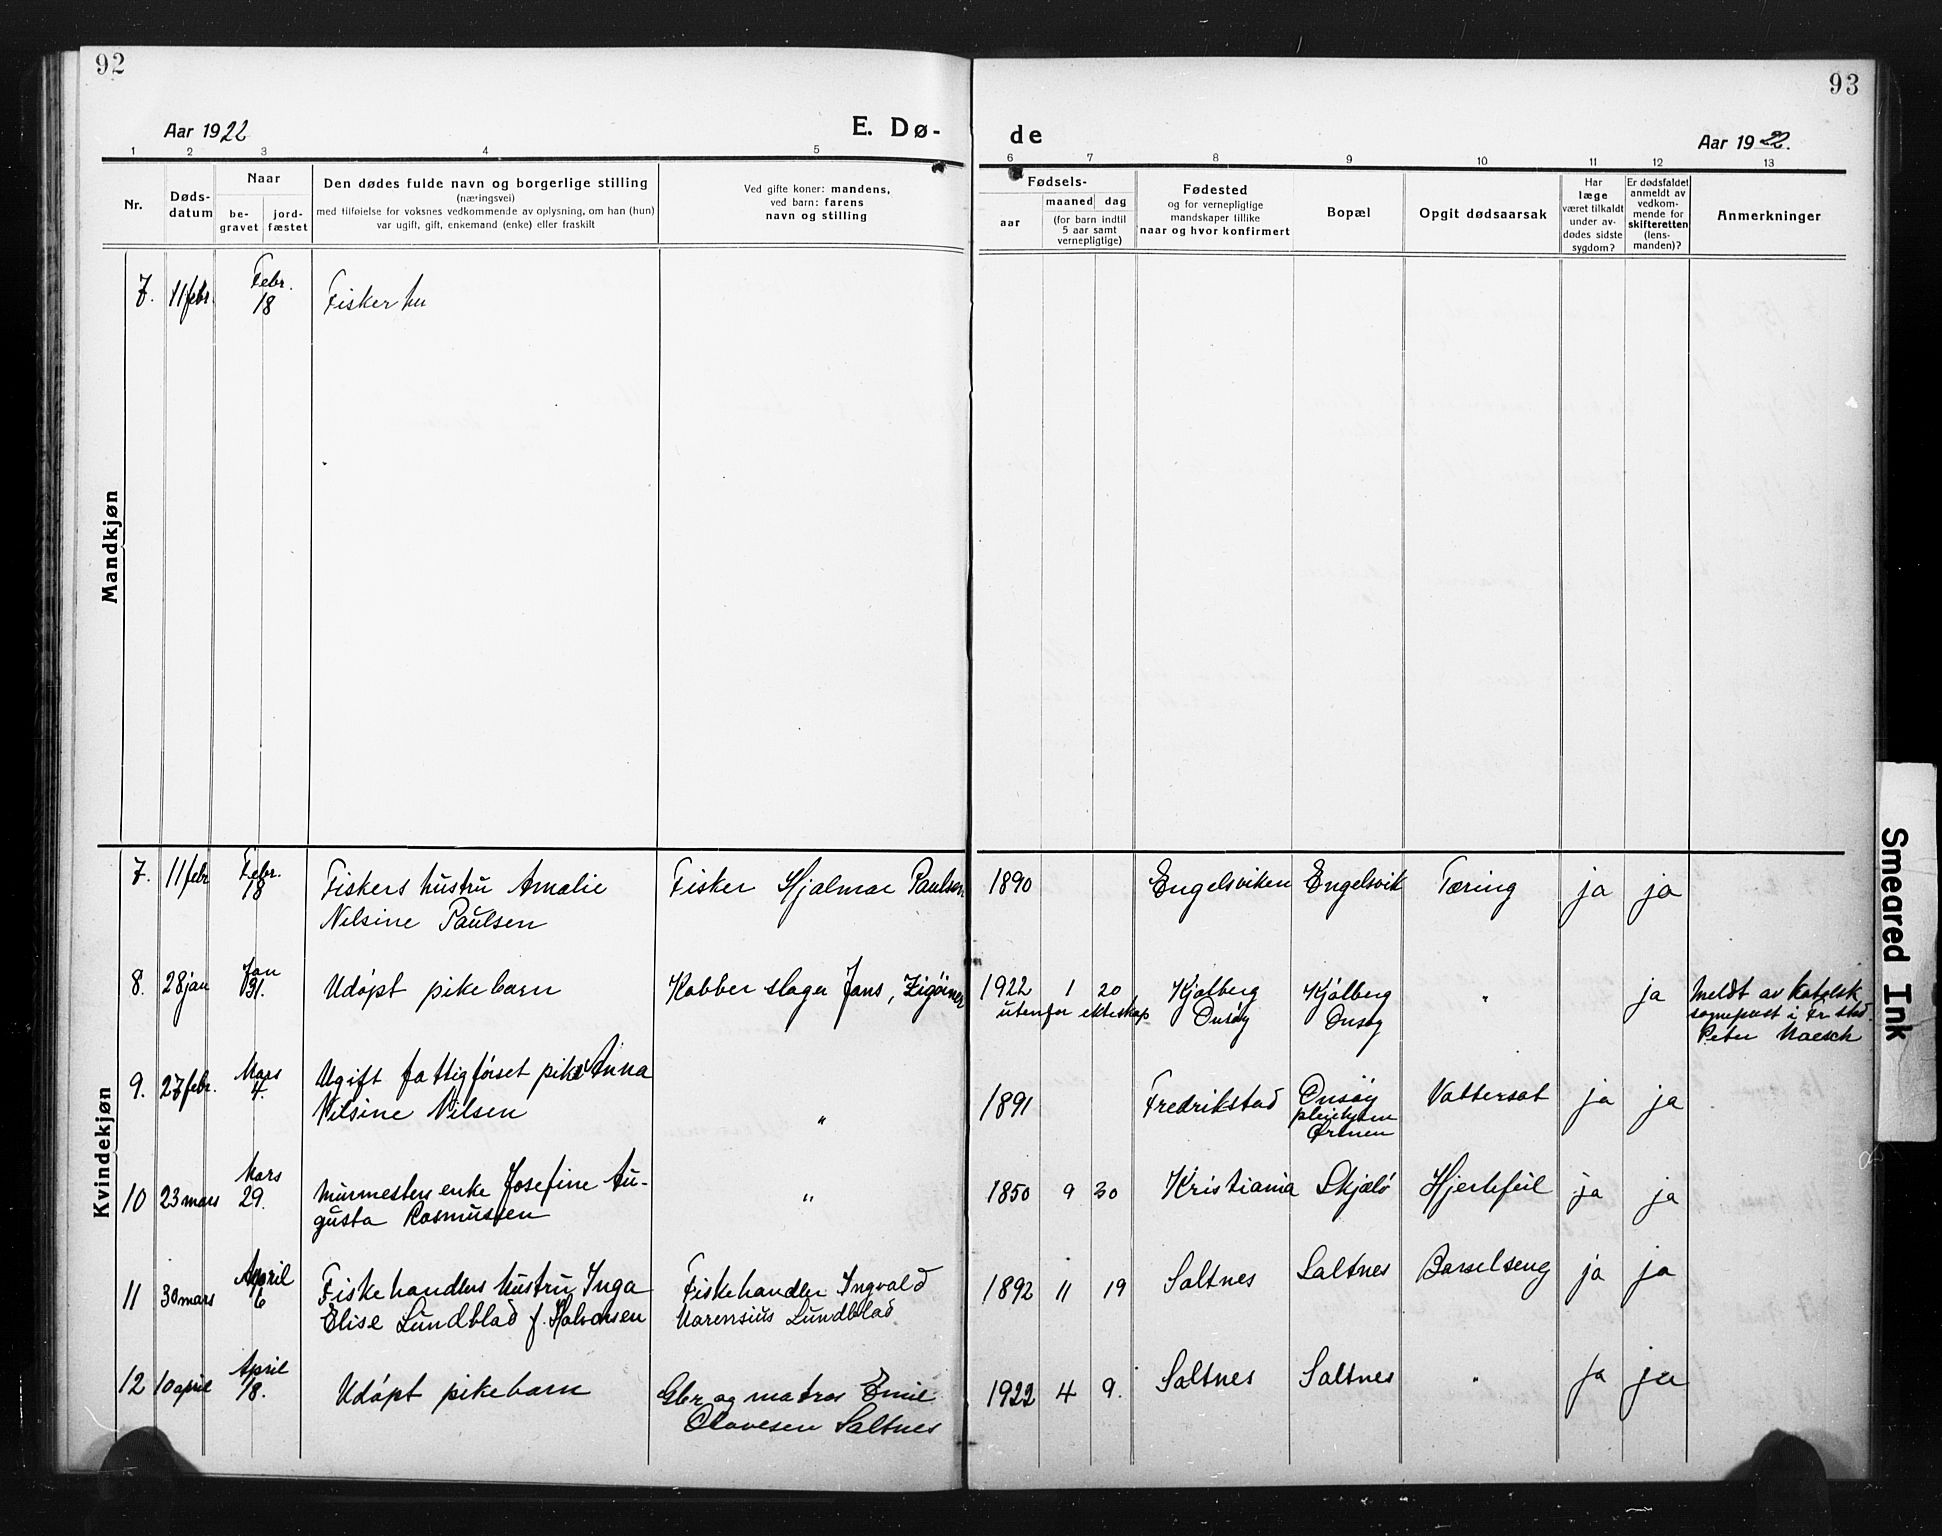 92
93
Aar 1922
E. Dø-
de
Aar 1922.
1 2 3 4 5 6 7 8 9 10 11 12 13
Nr.
Døds-
datum
Naar
be-
gravet
jord-
fæstet
Den dødes fulde navn og borgerlige stilling
(næringsvei)
med tilføielse for voksnes vedkommende av oplysning, om han (hun)
var ugift, gift, enkemand (enke) eller fraskilt
Ved gifte koner: mandens,
ved barn: farens
navn og stilling
Fødsels-
aar
maaned dag
(for barn indtil
5 aar samt
vernepligtige)
Fødested
og for vernepligtige
mandskaper tillike
naar og hvor konfirmert
Bopæl
Opgit dødsaarsak
Har
læge
været tilkaldt
under av-
dødes sidste
sygdom?
Er dødsfaldet
anmeldt av
vedkom-
mende for
skifteretten
(lens-
manden)?
Anmerkninger
Mandkjøn
7. 11 febr. Febr. 18 Fisker hu
Kvindekjøn
7. 11 febr Febr. 18 Fiskers hustru Amalie Fisker Hjalmar Paulsen 1890 Engelsviken Engelsvik Tæring ja ja
Nilsine Paulsen
8. 28 jan Jan 31. Udøpt pikebarn Kobberslager Jans, Zigøiner 1922 1 20 Kjølberg Kjølberg " ja Meldt av katolsk
utenfor ekteskap Onsøy Onsøy sognepræst i Fr.stad.
Peter
9. 27 febr. Mars 4. Ugift fattigforset pike Anna 1891 Fredrikstad Onsøy Vattersot ja ja
Nilsine Nilsen " pleiehjem
Ørmen
10 23 mars Mars 29. Murmesters enke Josefine Au- " 1850 9 30 Kristiania Skjælø Hjertefeil ja ja
gusta Rasmussen
11 30 mars April 6 Fiskehandlers hustru Inga Fiskehandler Ingvald 1892 11 19 Saltnes Saltnes Barselseng ja ja
Elise Lundblad f. Halvorsen Marensius Lundblad
12 10 april April 18. Udøpt pikebarn Gbr og matros Emil 1922 4 9. Saltnes Saltnes " Ja ja
Olavesen Saltnes
Smeared Ink